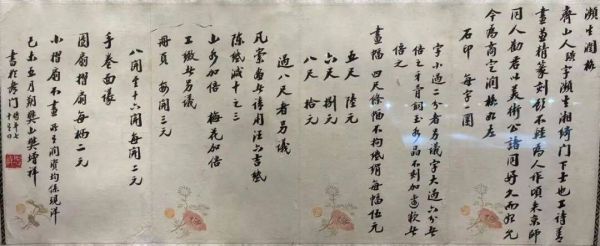 瀕生潤格
齊山人璜字瀕生湘綺門下士也工詩善
畫並精篆刻顧不輕為人作頃來京師
同人勸君以美術公諸同好久而始允
今為商定潤格如左
石印 每字一圓
字小過二分者另議字大過六分者
倍之牙骨銅玉劣品不刻加邊款者
倍之
畫幅 四尺條幅不拘紙絹每幅伍元
五尺 陸元
六尺 捌元
八尺 拾元
過八尺者另議
凡索畫者請用汪六吉紙
陳紙減十之三
山水加倍 梅花加倍
工緻者另議
冊頁 每開三元
八開至十六開每開二元
手卷面議
團扇摺扇每柄二元
小摺扇不畫 潤資均係現洋
己未五月朔樊山樊增祥
書於都門 時年七十有四